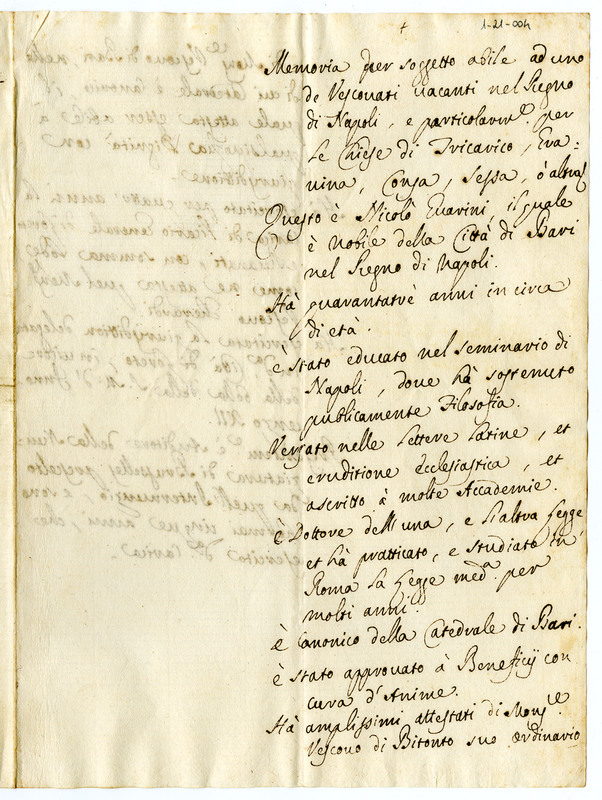 1-21-004
Memoria per soggetto abile ad uno
de Vescouati uacanti nel Regno
di Napoli, e particolarm.e per
Le Chiese di Tricarico, Eua=
nina, Conza, Sessa, ò altra
Questo è Nicolò Guarini, il quale
è Nobile della Città di Bari
nel Regno di Napoli.
Hà quarantatrè anni in circa
di età.
è stato educato nel seminario di
Napoli, doue hà sostenuto
publicamente Filosofia.
Versato nelle Lettere Latine, et
eruditione Ecclesiastica, et
ascritto à molte Accademie.
è Dottore dell'una, e L'altra Legge
et hà pratticato, e studiato in
Roma La Legge med.a per
molti anni.
è Canonico della Catedrale di Bari.
è stato approuato à Beneficij con
cura d'Anime.
Hà amplissimi attestati di Mons.re
Vescouo di Bitonto suo ordinario